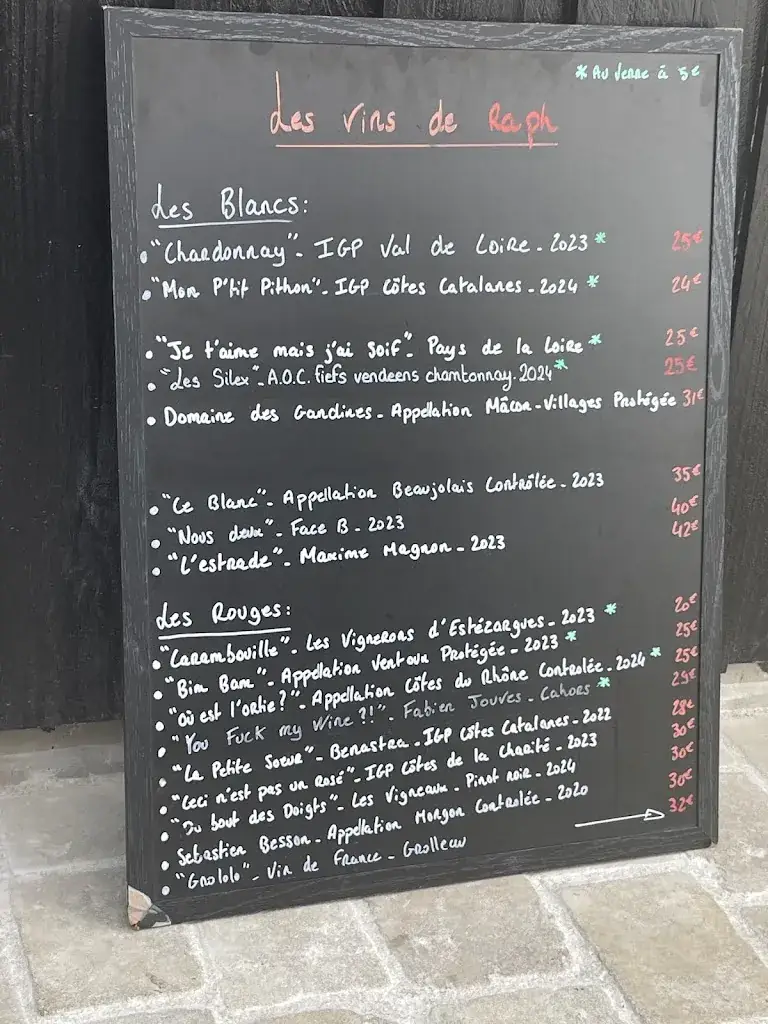 * Au verre à 5€
Les vins de Raph
Les Blancs:
• "Chardonnay" - IGP Val de Loire - 2023 * 25€
• "Mon P'tit Pithon" - IGP Côtes Catalanes - 2024 * 24€
• "Je t'aime mais j'ai soif" - Pays de la Loire * 25€
• "Les Silex" - A.O.C. fiefs vendeens chantonnay. 2024 * 25€
• Domaine des Gandines - Appellation Mâcon-Villages Protégée 31€
• "Ce Blanc" - Appellation Beaujolais Contrôlée - 2023 35€
• "Nous deux" - Face B - 2023 40€
• "L'estrade" - Maxime Magnon - 2023 42€
Les Rouges:
• "Carambouille" - Les Vignerons d'Estézargues - 2023 * 20€
• "Bim Bam" - Appellation Ventoux Protégée - 2023 * 25€
• "Où est l'ortie?" - Appellation Côtes du Rhône Controlée - 2024 * 25€
• "You Fuck my Wine?!" - Fabien Jouves - Cahors * 29€
• "La Petite Soeur" - Benastra - IGP Côtes Catalanes - 2022 28€
• "Ceci n'est pas un Rosé" - IGP Côtes de la Charité - 2023 30€
• "Du bout des Doigts" - Les Vigneaux - Pinot noir - 2024 30€
• Sebastien Besson - Appellation Morgon Controlée - 2020 30€
• "Grololo" - Vin de France - Grolleau 32€